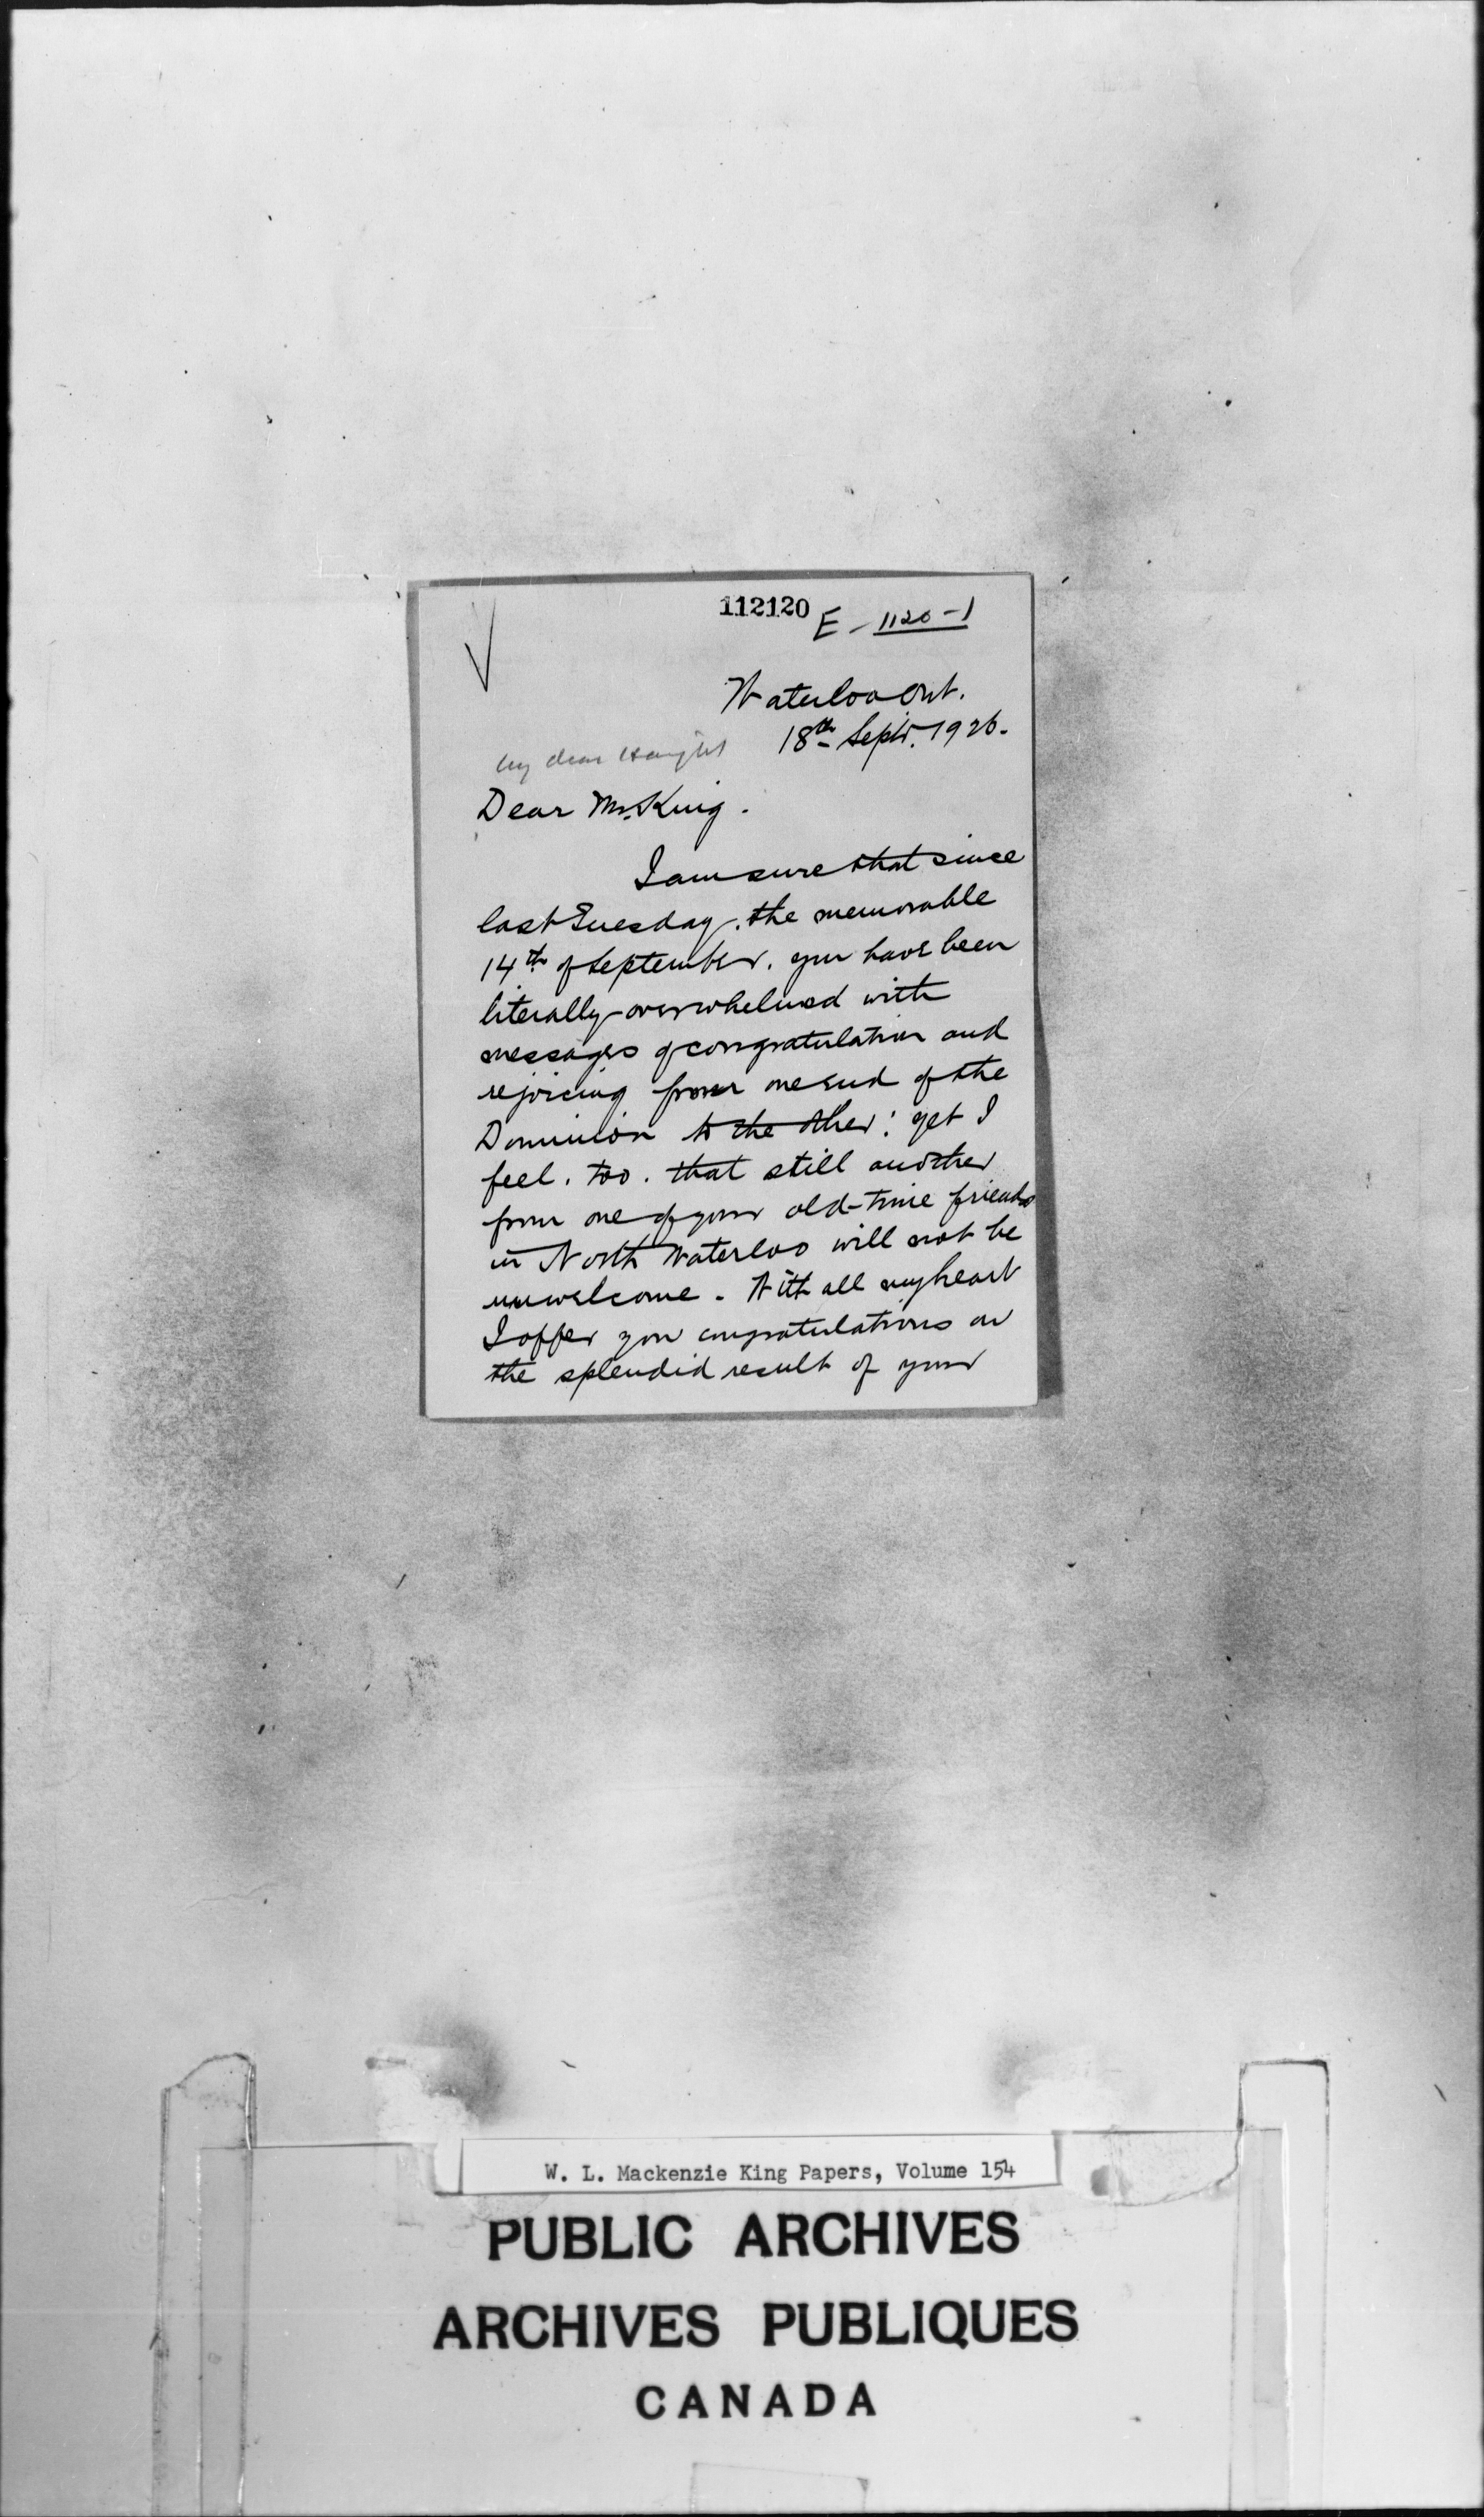 112120
E - 1120-1
Waterloo Ont.
18th Sept. 1926.
my dear Haight
Dear Mr. King.
I am sure that since
last Tuesday, the memorable
14th of September, you have been
literally overwhelmed with
messages of congratulation and
rejoicing from one end of the
Dominion to the other: yet I
feel, too, that still another
from one of your old-time friends
in North Waterloo will not be
unwelcome. With all my heart
I offer you congratulations on
the splendid result of your
W. L. Mackenzie King Papers, Volume 154
PUBLIC ARCHIVES
ARCHIVES PUBLIQUES
CANADA